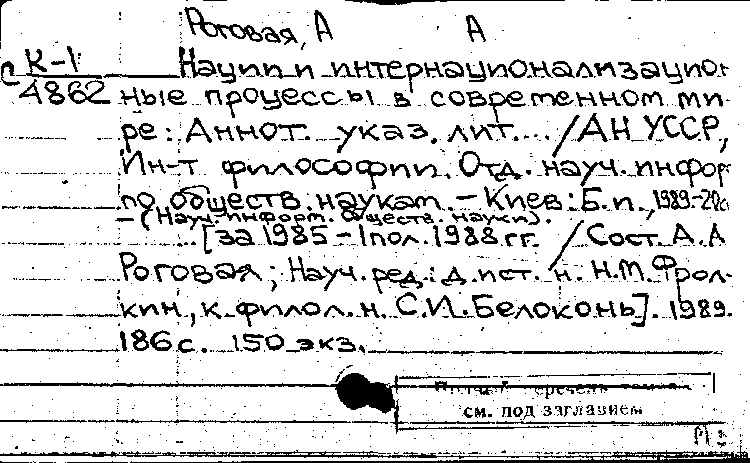 Роговая, А А
с К-1 Нации и интернационализацион
4862 ные процессы в современном ми-
ре: Аннот. указ. лит. ... / АН УССР,
Ин-т философии. Отд. науч. информ
по обществ. наукам. – Киев: Б.и., 1989-20см
– (Науч. информ. Обществ. науки).
... [за 1985 – 1 пол. 1988 гг. / Сост. А.А
Роговая; Науч. ред.: д.ист. н. Н.М. Фрол-
кин, к. филол. н. С.И. Белоконь]. 1989.
186 с. 150 экз.
Полный перечень томов
см. под заглавием